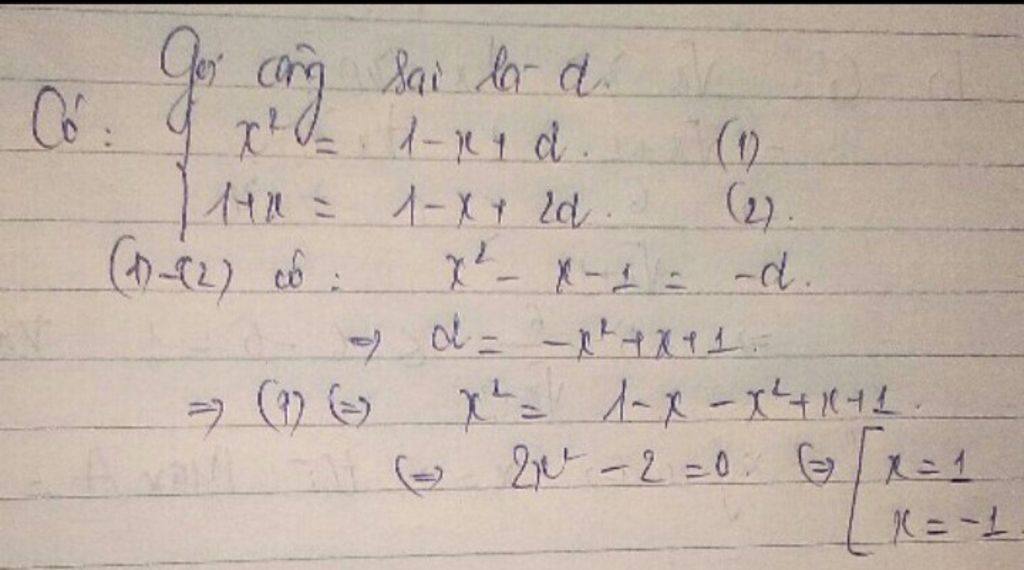 Gọi công sai là d.
Có: { x² = 1-x+d. (1)
1+x = 1-x+2d. (2).
(1)-(2) có: x² - x - 1 = -d.
⇒ d = -x²+x+1.
⇒ (1) ⇔ x² = 1-x-x²+x+1.
⇔ 2x² - 2 = 0. ⇔ [ x = 1
x = -1